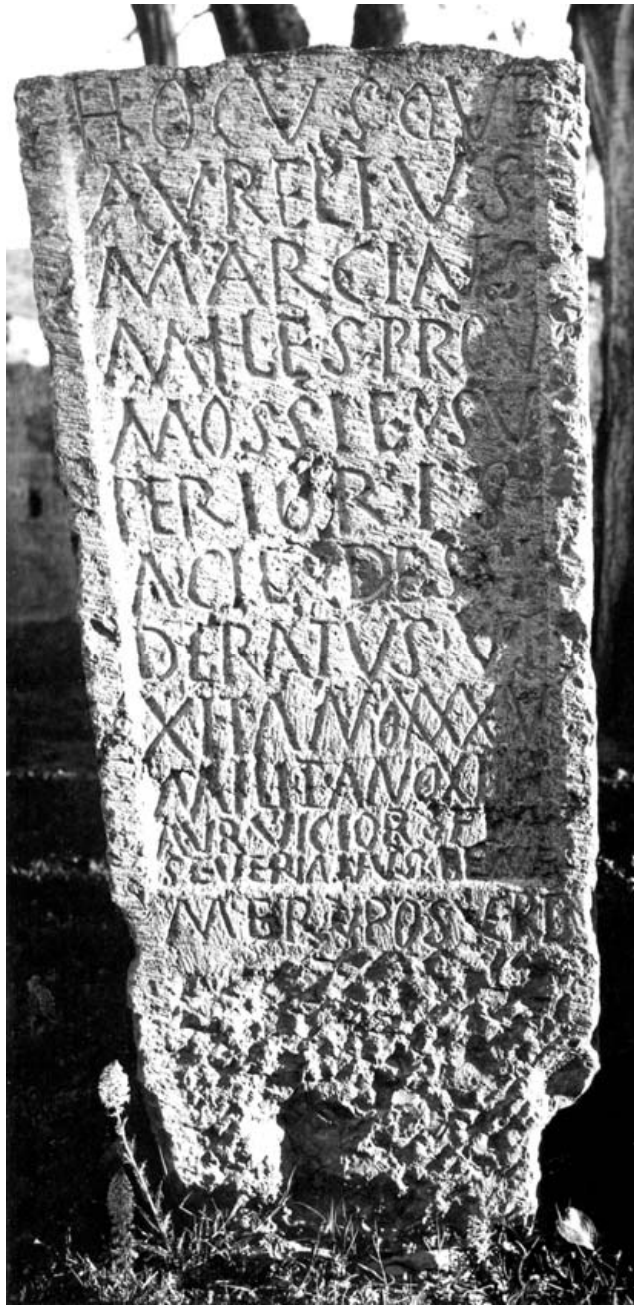 HOCVSQVE
AVRELIVS
MARCINVS
MILESPROV
MOSSLEGSV
PERIORIS
ACIE DESI
DERATVS VI
XITANOXXXV
MILITANOXI
AVRVICTOR ET
SEVERIANVSBENE
MERYPOSVERE